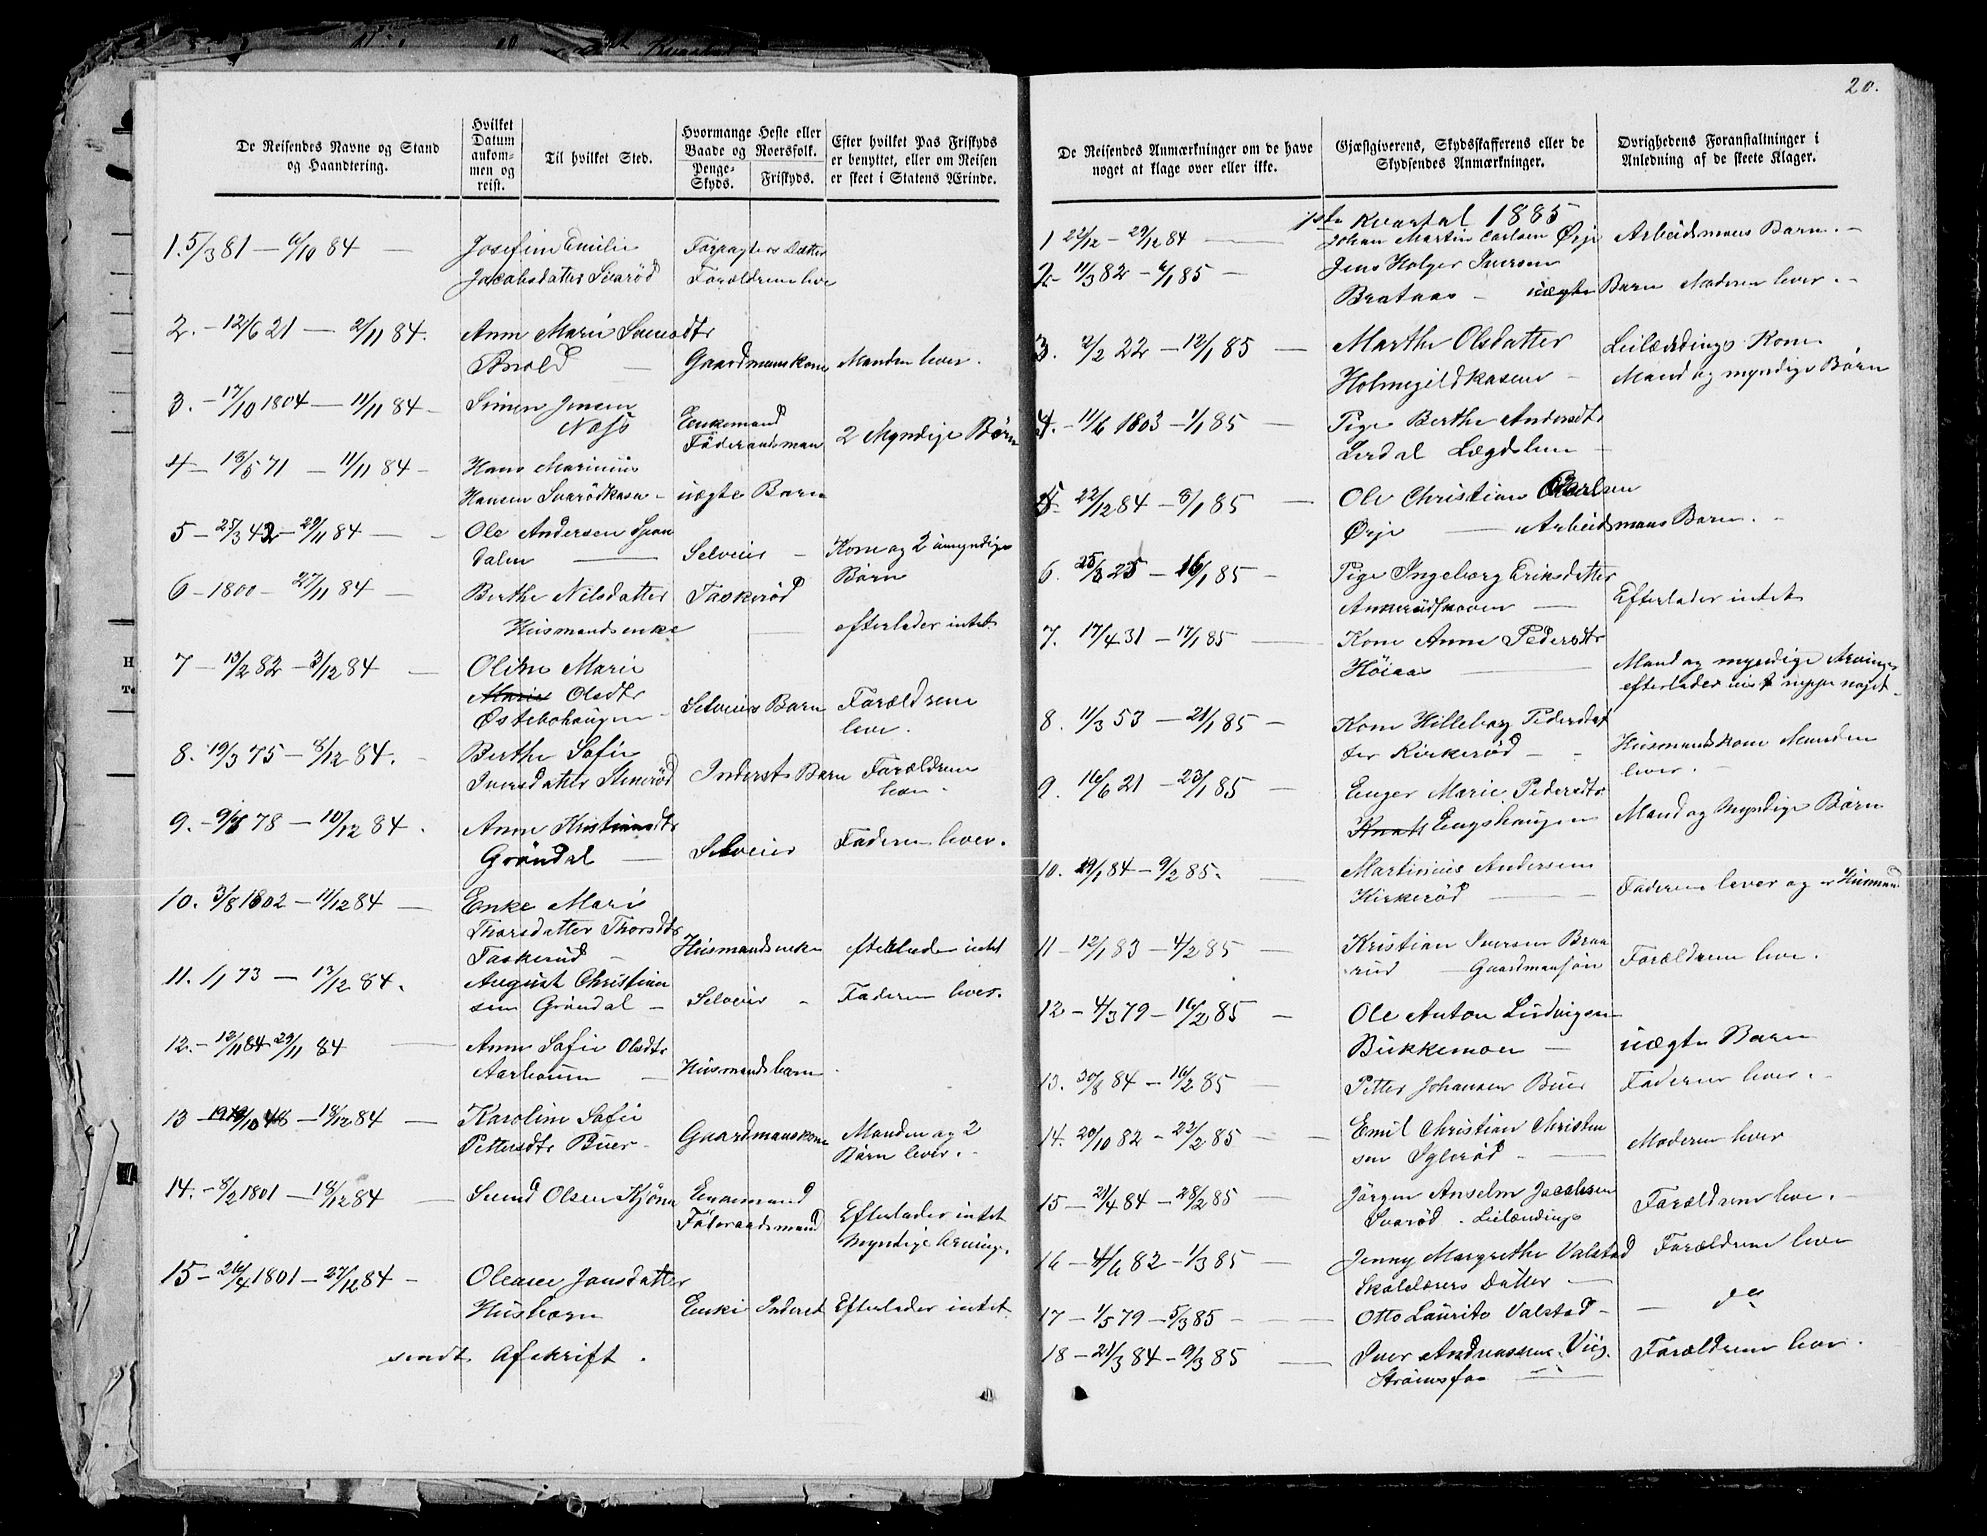 De Reisendes Navne og Stand
og Haandtering.
Hvilket
Datum
ankom-
men og
reist.
Til hvilket Sted.
Hvormange Heste eller
Baade og Roersfolk.
Penge-
Skyds.
Friskyds.
Efter hvilket Pas Friskyds
er benyttet, eller om Reisen
er skeet i Statens Ærinde.
1. 5/3 81 — 6/10 84 — Josefine Emilie
Jacobsdatter Svarød
Forpagters Datter
Forældrene leve
2. - 12/6 21 — 2/11 84. Anne Marie Svensdtr
Gaardmanskone Manden lever.
3. - 17/10 1804 — 11/11 84 - Simen Jensen
Næss
Enkemand
Föderaadsman 2 Myndige Børn
4 — 13/5 71 — 11/11 84 - Hans Marinius
Hansen Svarødkasa - uægte Barn
5 - 25/3 42 - 29/11 84 — Ole Andersen
dalen — Selveier - Kone og 2 umyndige
Børn
6 - 1800 - 27/11 84 — Berthe Nilsdatter Taskerød
Husmandsenke — efterlader intet
7 - 13/2 82 - 3/12 84 — Oline Marie
Marie Olsdtr
Østebøhaugen - Selveiers Barn Forældrene
lever.
8. 19/3 75 — 8/12 84. Berthe Sofie
Iversdatter Stenerød Inderst Barn Forældrene
leve.
9. - 9/8 78 — 10/12 84. Anne Kristiansdtr
Gröndal — Selveier Faderen lever.
10. 3/8 1802 — 11/12 84 — Enke Mari
Thorsdatter Thorsdtr
Taskerud - Husmandsenke efterlader intet
11. 1/1 73 — 13/12 84. August Christian
sen Gröndal - Selveier - Faderen lever.
12. - 13/11 84 - 29/11 84 — Anne Sofie Olsdtr
Aarbouen - Husmandsbarn
13 - 19/10 48 - 18/12 84 — Karoline Sofie
Pettersdtr Buer - Gaardmanskone Manden og 2
Børn lever.
14. - 8/2 1801 — 18/12 84 — Svend Olsen Kjöne Enkemand
Föderaadsmand Efterlader intet
Myndige Arving.
15 - 26/4 1801 - 27/12 84 - Oleane Jonsdatter
Enke Inderst Efterlader intet
sendt Afskrift.
20.
De Reisendes Anmærkninger om de have
noget at klage over eller ikke.
Gjæstgiverens, Skydsskafferens eller de
Skydsendes Anmærkninger.
Øvrighedens Foranstaltninger i
Anledning af de skeete Klager.
1ste Kvartal 1885
1 22/12 - 29/12 84 — Johan Martin Carlsen Ørje Arbeidsmans Barn. -
2 - 11/3 82 - 6/1 85 - Jens Holger Iversen
Brataas - uægte Barn Moderen lever. -
3. 2/2 22 - 12/1 85 — Marthe Olsdatter
Holmegildkasen - Leilændings Kone
Mand og myndige Børn
4. - 11/6 1803 - 1/1 85 - Pige Berthe Andersdtr
Lerdal Lægdslem -
5 22/12 84 - 8/1 85 — Ole Christian Carlsen
Ørje — Arbeidsmans Barn. -
6. 25/3 25 - 16/1 85 - Pige Ingeborg Eriksdatter
Ankerødskoven — Efterlader intet
7. 17/4 31 - 17/1 85 — Kone Anne Pedersdtr
Höiaas — Mand og myndige Arvinger
efterlader vist neppe noget -
8. 11/3 53 - 21/1 85 — Kone Hilleborg Pedersdat
ter Kirkerød - Husmandskone Manden
lever. -
9. 16/6 21 - 23/1 85 — Enger Marie Pedersdtr
Engshaugen Mand og Myndige Börn
10. 19/1 84 - 9/2 85. — Martinius Andersen
Kirkerød — Faderen lever og er Husmand
11 - 12/1 83 - 4/2 85 — Kristian Iversen Braa
rud - Gaardmansön Forældrene leve.
12 - 4/3 79 - 16/2 85 — Ole Anton Ludvigsen
Bukkemoen — uægte Barn
13. 30/8 84 - 16/2 85 — Petter Johansen Buer Faderen lever. -
14. 20/10 82 - 22/2 85 - Emil Christian Christen
sen - Moderen lever
15 - 21/4 84 - 28/2 85 — Jörgen Anselm Jacobsen
Svarød - Leilændings Forældrene leve. -
16 - 4/6 82 - 1/3 85 — Jenny Margrethe Valstad Forældrene leve
Skolelærers Datter —
17 - 1/5 79 - 5/3 85 - Otto Lauritz Valstad - — do
18 - 21/3 84 - 9/3 85 — Iver Andreassen Viig.
Strömsfos — Forældrene leve.